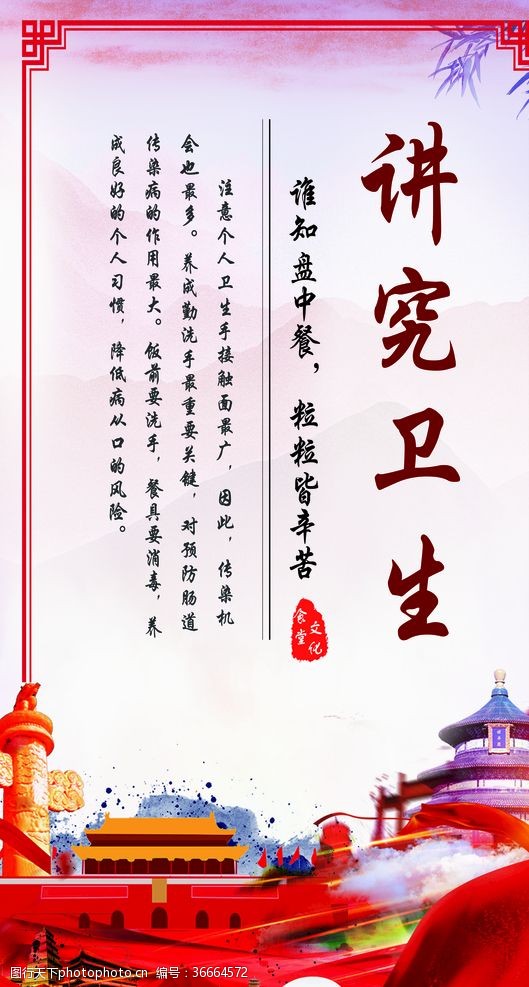 讲究卫生
谁知盘中餐，粒粒皆辛苦
食堂
文化
注意个人卫生手接触面最广，因此，传染机
会也最多。养成勤洗手最重要关键，对预防肠道
传染病的作用最大。饭前要洗手，餐具要消毒，养
成良好的个人习惯，降低病从口的风险。
图行天下photophoto.cn 编号：36664572